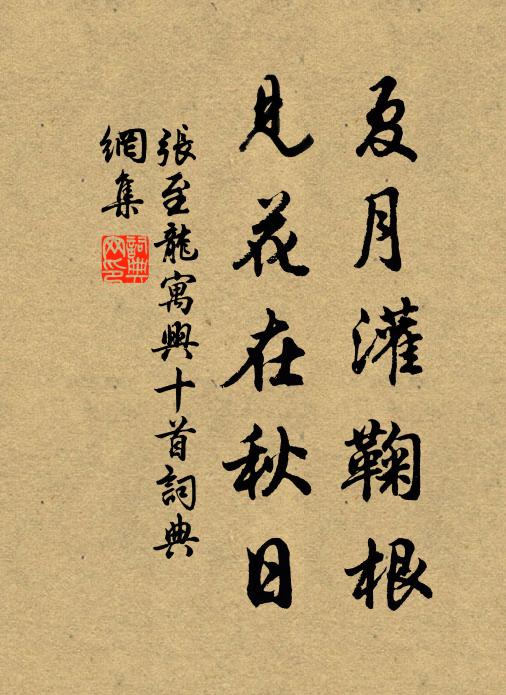 夏月灌鞠根
見花在秋日
張至龍寓興十首詞典
網集
詞典
网印